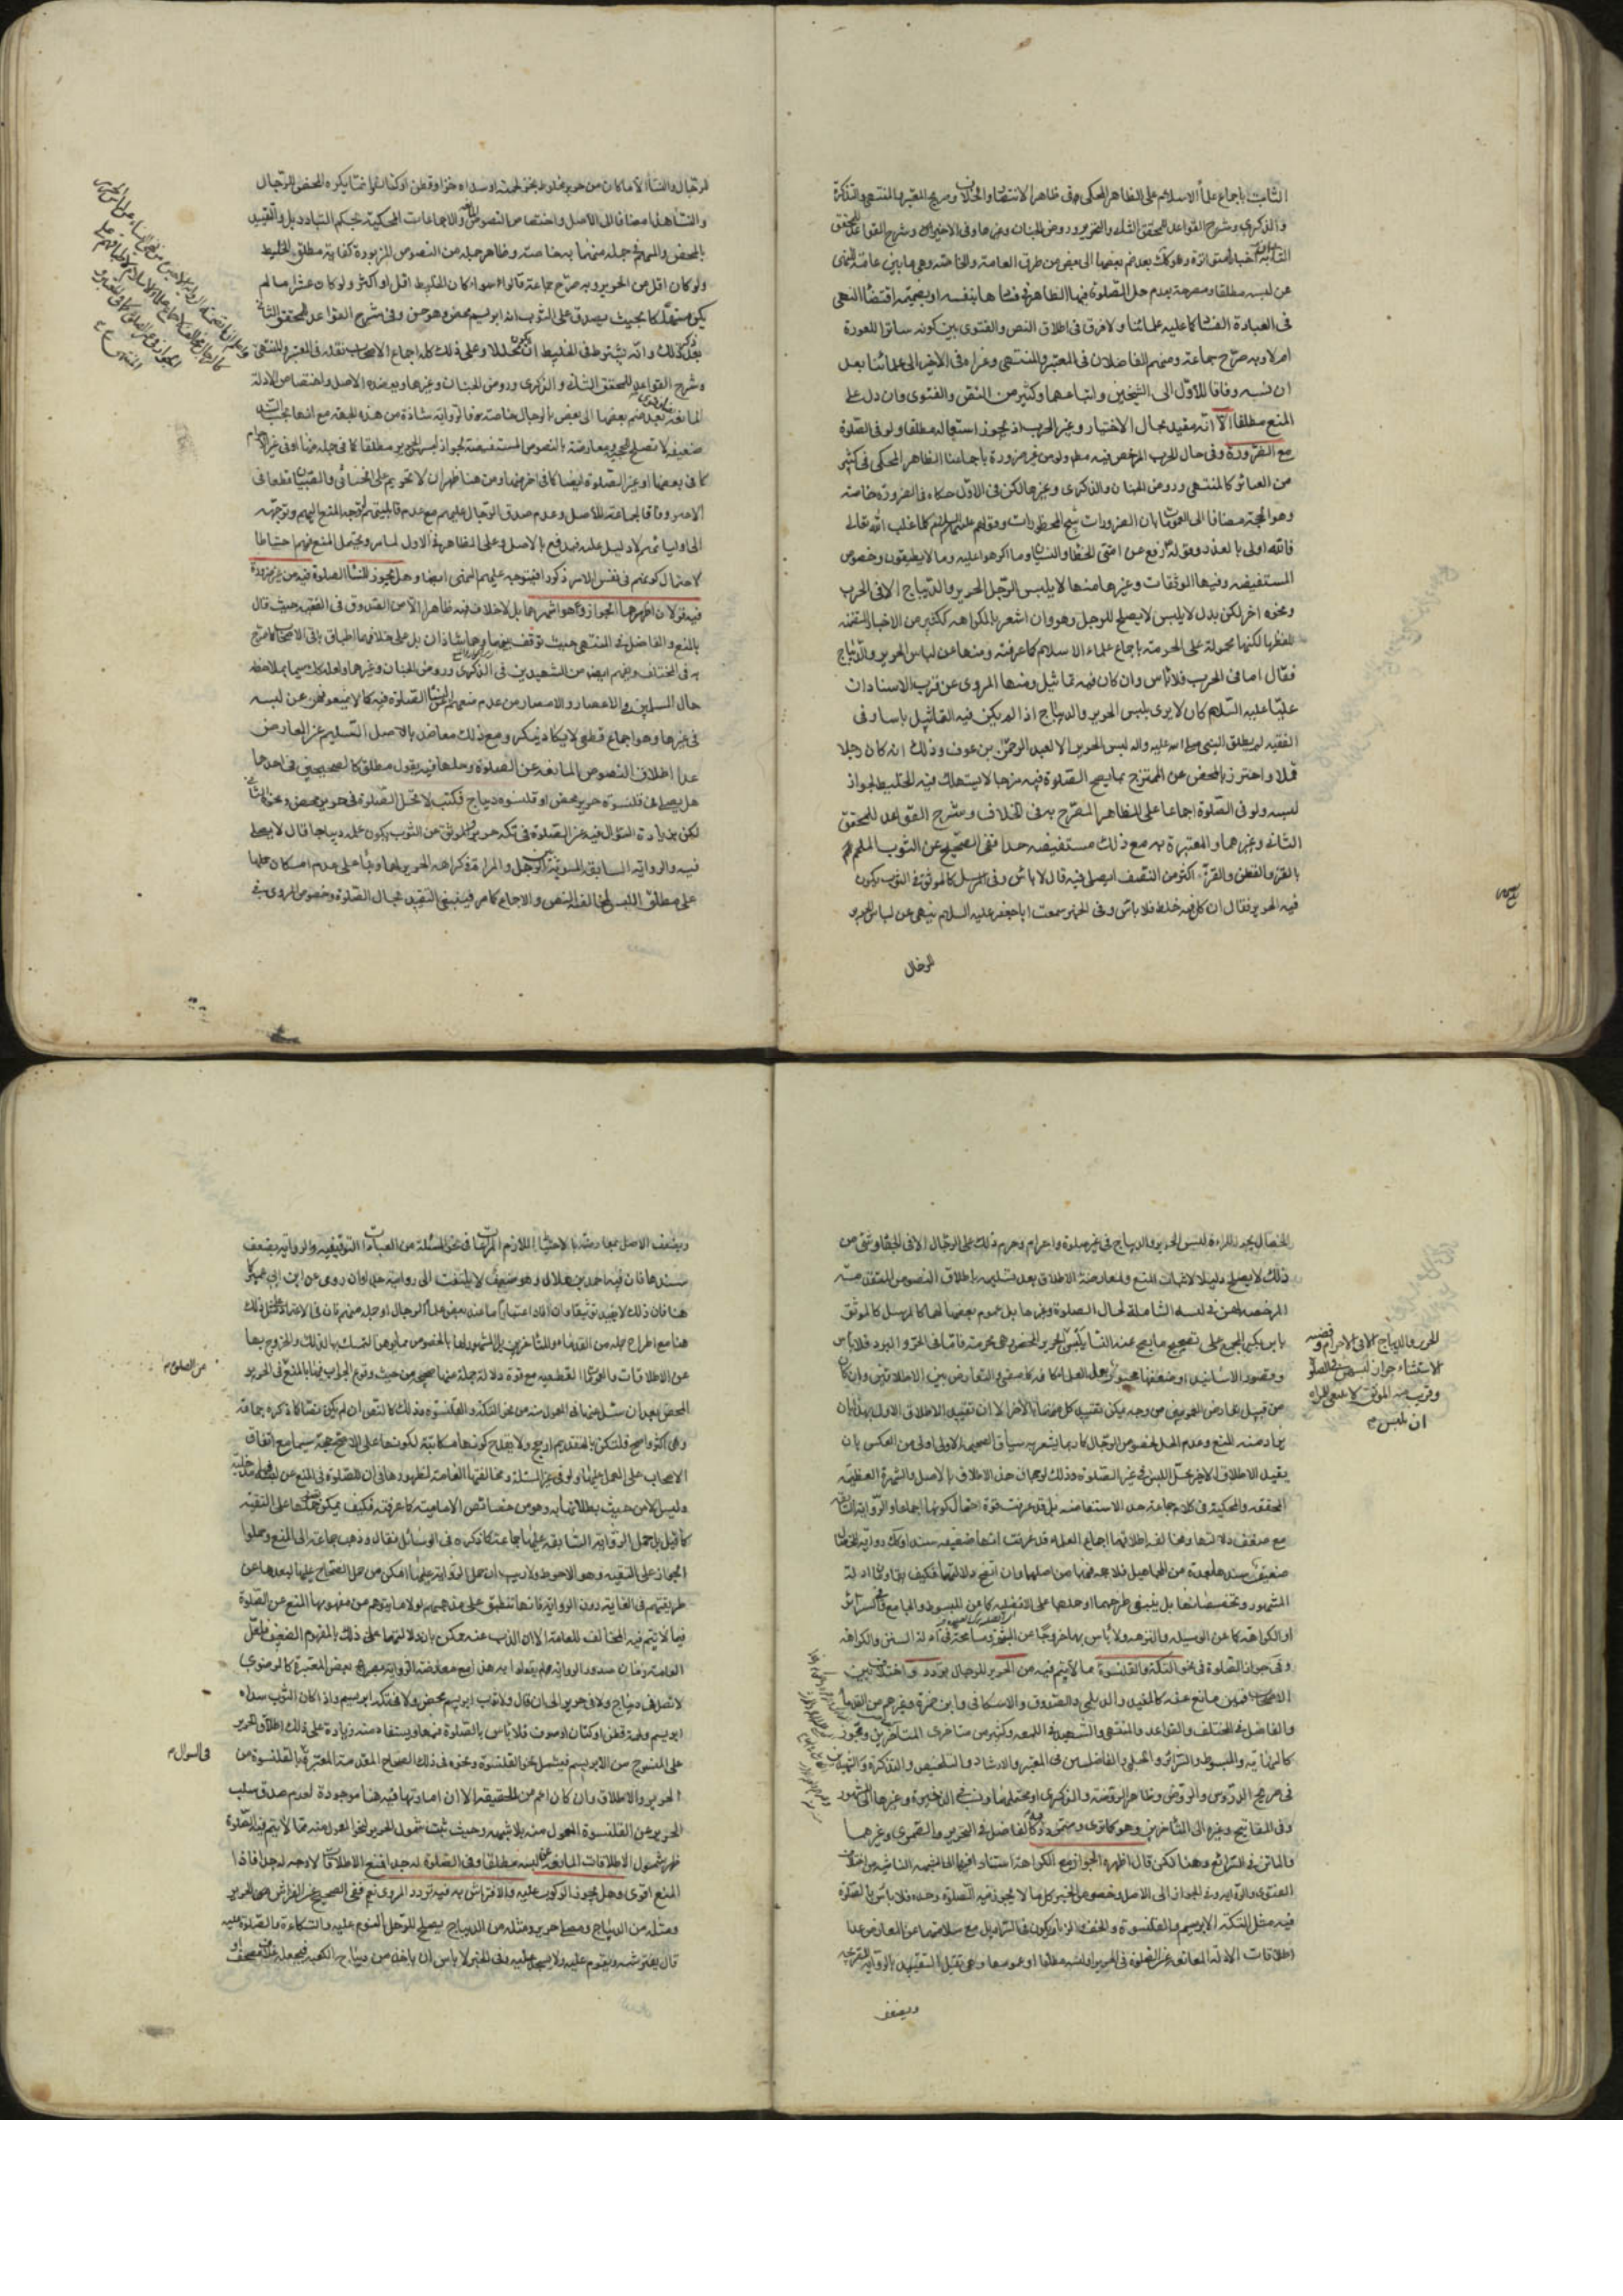 الثابت باجماع علماء الاسلام على الظاهر المحكى فى ظاهر الانتصار والخلاف وصريح المعتبر والمنتهى والتذكرة
والذكرى وشرح القواعد للمحقق الثانى والتحرير وروض الجنان وغيرها وفى الاخيرين وشرح القواعد للمحقق
الثانى اخبار متواترة وهو كك بعد ضم بعضها الى بعض من طرق العامة والخاصة وهى ما بين عامة للنهى
عن لبسه مطلقا ومصرحة بعدم حل الصلوة فيها الظاهرة فى فسادها بنفسه او بضميمة اقتضاء النهى
فى العبادة الفساد كما عليه علمائنا ولا فرق فى اطلاق النص والفتوى بين كونه ساترا للعورة
ام لا وبه صرح جماعة ومنهم الفاضلان فى المعتبر والمنتهى وعزاه فى الاخير الى علمائنا بعد
ان نسبه وفاقا للاول الى الشيخين واتباعهما وكثير من النص والفتوى وان دل على
المنع مطلقا الا انه مقيد بحال الاختيار وغير الحرب اذ يجوز استعماله مطلقا ولو فى الصلوة
مع الضرورة وفى حال الحرب المرخص فيه مطلقا ولو من غير ضرورة باجماعنا الظاهر المحكى فى كثير
من العبائر كالمنتهى وروض الجنان والذكرى وغيرها لكن فى الاول حكاه فى الضرورة خاصة
وهو الحجة مضافا الى العمومات بان الضرورات تبيح المحظورات وقولهم عليهم السلام كلما غلب الله تعالى
فالله اولى بالعذر وقوله رفع عن امتى الخطأ والنسيان وما اكرهوا عليه وما لا يطيقون وخصوص
المستفيضة وفيها الموثقات وغيرها منها لا يلبس الرجل الحرير والديباج الا فى الحرب
ونحوه اخر لكن بدل لا يلبس لا يصلح للرجل وهو وان اشعر بالكراهة ككثير من الاخبار المتضمنة
للفظها لكنها محمولة على الحرمة باجماع علماء الاسلام كما عرفته ومنها عن لباس الحرير والديباج
فقال اما فى الحرب فلا باس وان كان فيه تماثيل ومنها المروى عن قرب الاسناد ان
عليا عليه السلام كان لا يرى بلبس الحرير والديباج اذا لم يكن فيه التماثيل باسا وفى
الفقيه لم يطلق النبى صلى الله عليه واله لبس الحرير الا لعبد الرحمن بن عوف وذلك انه كان رجلا
قملا واحترز بالمحض عن الممتزج بما يصح الصلوة فيه مزجا لا يستهلك فيه الخليط لجواز
لبسه ولو فى الصلوة اجماعا على الظاهر المصرح به فى الخلاف وشرح القواعد للمحقق
الثانى وغيرهما والمعتبرة به مع ذلك مستفيضة جدا ففى الصحيح عن الثوب الملحم
بالقز والقطن والقز اكثر من النصف ايصلى فيه قال لا باس وفى المرسل كالموثق فى الثوب يكون
فيه الحرير فقال ان كان فيه خلط فلا باس وفى الخبر سمعت ابا جعفر عليه السلام ينهى عن لباس الحرير
للرجال
للرجال والنساء الا ما كان من حرير مخلوط بخز لحمته او سداه خز او قطن او كتان وانما يكره المحض للرجال
والنساء هذا مضافا الى الاصل واختصاص النصوص والاجماعات المحكية بحكم التبادر بل والتقييد
بالمحض والمبهم فى جملة منها به خاصة وظاهر جملة من النصوص المزبورة كفاية مطلق الخليط
ولو كان اقل من الحرير وبه صرح جماعة قالوا سواء كان الخليط اقل او اكثر ولو كان عشرا ما لم
يكن مستهلكا بحيث يصدق على الثوب انه ابريسم محض وهو حسن وفى شرح القواعد للمحقق الثانى
بعد ذكر ذلك وانه يشترط فى الخليط ان يكون محللا وعلى ذلك كله اجماع الاصحاب نقله فى المعتبر والمنتهى
وشرح القواعد للمحقق الثانى والذكرى وروض الجنان وغيرها ويعضده الاصل واختصاص الادلة
المانعة بعد ضم بعضها الى بعض بالرجال خاصة
ضعيفة لا تصلح للحجية ومعارضة بالنصوص المستفيضة بجواز لبسهن الحرير مطلقا كما فى جملة منها او فى غير الاحرام
كما فى بعضها او غير الصلوة ايضا كما فى اخر منها ومن هنا ظهر ان لا تحريم على الخناثى والصبيان قطعا فى
الاخير وفاقا لجماعة للاصل وعدم صدق الرجال عليهم مع عدم قابليتهم لتوجه المنع اليهم وتوجهه
الى اوليائهم لا دليل عليه فيدفع بالاصل وعلى الظاهر فى الاول لما مر ويحتمل المنع فيهم احتياطا
لاحتمال كونهم فى نفس الامر ذكورا فيتوجه عليهم النهى ايضا وهل يجوز للنساء الصلوة فيه من غير ضرورة
فيه قولان اظهرهما الجواز وهو اشهرهما بل لا خلاف فيه ظاهرا الا من الصدوق فى الفقيه حيث قال
بالمنع والفاضل فى المنتهى حيث توقف بينهما وهما شاذان بل على خلافهما اطباق باقى الاصحاب كما صرح
به فى المختلف ويفهم ايضا من الشهيدين فى الذكرى وروض الجنان وغيرهما ولعله كك سيما بملاحظة
حال المسلمين فى الاعصار والامصار من عدم منعهم النساء عن الصلوة فيه كما لا يمنعونهن عن لبسه
فى غيرها وهو اجماع قطعى لا يكاد ينكر ومع ذلك معاضد بالاصل السليم عن المعارض
عدا اطلاق النصوص المانعة عن الصلوة وحلها فيه بقول مطلق كالصحيحين فى احدهما
هل يصلى فى قلنسوة حرير محض او قلنسوة ديباج فكتب لا تحل الصلوة فى حرير محض ونحوه الثانى
لكن بزيادة السؤال فيه عن الصلوة فى تكة حرير والموثق عن الثوب يكون علمه ديباجا قال لا يصلى
فيه والرواية السابقة المسوية بين الرجل والمراة فى كراهة الحرير لهما وبناء على عدم امكان حملها
على مطلق اللبس لمخالفة النص والاجماع كما مر فينبغى التقييد بحال الصلوة وخصوص المروى فى
الخصال يجوز للمراة لبس الحرير والديباج فى غير صلوة واحرام وحرم ذلك على الرجال الا فى الجهاد وشئ من
ذلك لا يصلح دليلا لاثبات المنع ولمعارضة الاطلاق بعد تسليمه باطلاق النصوص المتقدمة
المرخصة لهن فى لبسه الشاملة لحال الصلوة وغيرها بل عموم بعضها لها كالمرسل كالموثق
بابن بكير المجمع على تصحيح ما يصح عنه النساء يلبسن الحرير المحض وهى محرمة فاما فى الخز والبرد فلا باس
وقصور الاسانيد او ضعفها مجبور بعمل العلماء كافة كما مضى والتعارض بين الاطلاقين وان كان
من قبيل تعارض العمومين من وجه يمكن تقييد كل منهما بالاخر الا ان تقييد الاطلاق الاول بهذا بان
يراد منه المنع وعدم الحل لخصوص الرجال كما ربما يشعر به سياق الصحيحة الاولى اولى من العكس بان
يقيد الاطلاق الاخير بحل اللبس فى غير الصلوة وذلك لرجحان هذا الاطلاق بالاصل والشهرة العظيمة
المحققة والمحكية فى كلام جماعة حد الاستفاضة بل قد عرفت قوة احتمال كونها اجماعا والرواية السابقة
مع ضعف دلالتها ومخالفة اطلاقها اجماع العلماء قد عرفت انها ضعيفة سندا وكك رواية الخصال
ضعيف سندها بعدة من المجاهيل فلا حجة فيها من اصلها وان اتضح دلالتها فكيف يقاوم بها ادلة
المشهور وتخصيصاتها بل ينبغى طرحهما او حملهما على الافضلية كما عن المبسوط والجامع وفى السرائر
او الكراهة كما عن الوسيلة والنزهة ولا باس بهما خروجا عن الشبهة ومسامحة فى ادلة السنن والكراهة
وفى جواز الصلوة فى نحو التكة والقلنسوة مما لا يتم فيه من الحرير للرجال تردد واختلاف بين
الاصحاب فبين مانع عنه كالمفيد والديلمى والصدوق والاسكافى وابن حمزة وغيرهم من القدماء
والفاضل فى المختلف والقواعد والمنتهى والشهيد فى اللمعة وكثير من متاخرى المتاخرين ومجوز
كالنهاية والمبسوط والسرائر والحلبى والفاضلين فى المعتبر والارشاد والتلخيص والتذكرة والشهيدين
فى صريح الدروس والروض وظاهر الروضة والذكرى او محتملها ونسب فى الذخيرة وغيرها الى المشهور
وفى المفاتيح وغيره الى المتاخرين وهو كما ترى ومتردد كالفاضل فى التحرير والصيمرى وغيرهما
والماتن فى الشرائع وهنا لكن قال اظهره الجواز مع الكراهة استنادا فيها الى الشبهة الناشئة من اختلاف
الفتوى والرواية وفى الجواز الى الاصل وخصوص الخبر كل ما لا يجوز فيه الصلوة وحده فلا باس بالصلوة
فيه مثل التكة الابريسم والقلنسوة والخف والزنار يكون فى السراويل مع سلامتهما عن المعارض عدا
اطلاقات الادلة المانعة عن الصلوة فى الحرير او لبسه مطلقا او عموما وهى تقبل التقييد بالرواية الصريحة
ويضعف
للحرير والديباج الا فى الاحرام وقضية
الاستثناء جواز لبسهن فى الصلوة
وقريب منه الموثق لا ينبغى للمراة
ان تلبس م
ويضعف الاصل بمعارضته بالاحتياط اللازم المراعاة فى نحو المسئلة من العبادات التوقيفية والرواية بضعف
سندها فان فيه احمد بن هلال وهو ضعيف لا يلتفت الى روايته حتى لو ان روى عن ابن ابى عمير كما
هنا فان ذلك لا يفيد توثيقا وان افاد اعتبارا ما عند بعض علماء الرجال او جلة منهم فان فى الاعتماد على مثل ذلك
هنا مع اطراح جملة من القدماء والمتاخرين بل المشهور لها بالخصوص مما يوهن التمسك بها لذلك والخروج بها
عن الاطلاقات والعمومات القطعية مع قوة دلالة جملة منها صحيحين من حيث وقوع الجواب فيها بالمنع فى الحرير
المحض بعد ان سئل عنها فى المعمول منه من نحو التكة والقلنسوة وذلك كالنص ان لم يكن نصا كما ذكره جماعة
وهى اكثر واصح فلتكن بالتقديم ارجح ولا يقدح كونها مكاتبة لكونها على الاصح حجة سيما مع اتفاق
الاصحاب على العمل بها ولو فى غير المسئلة ومخالفتها العامة لظهورها فى ان للصلوة فى المنع عن لبسه مدخلية
وليس الا من حيث بطلانها به وهو من خصائص الامامية كما عرفته فكيف يمكن حملها على التقية
كما قيل بل حمل الرواية السابقة عليها جماعة كما ذكره فى الوسائل فقال وذهب جماعة الى المنع وحملوا
الجواز على التقية وهو الاحوط ولا ريب ان حمل الرواية عليها امكن من حمل الصحاح عليها لبعدها عن
طريقتهم فى الغاية دون الرواية فانها تنطبق على مذهبهم لولا ما يتوهم من مفهومها المنع عن الصلوة
فيما لا يتم فيه المخالف للعامة الا ان الذب عنه ممكن بان دلالتها على ذلك بالمفهوم الضعيف
لا تصل فى ديباج ولا فى حرير الى ان قال ولا ثوب ابريسم محض ولا فى تكة ابريسم واذا كان الثوب سداه
ابريسم ولحمته قطن او كتان او صوف فلا باس بالصلوة فيها ويستفاد منه زيادة على ذلك اطلاق الحرير
على المنسوج من الابريسم فيشمل نحو القلنسوة ونحوه فى ذلك الصحاح المتقدمة المعتبرة بالقلنسوة من
الحرير والاطلاق وان كان اعم من الحقيقة الا ان امارتها فيه هنا موجودة لعدم صدق سلب
الحرير عن القلنسوة المعمول منه بلا شبهة وحيث ثبت شمول الحرير لنحو المعمول منه مما لا يتم فيه الصلوة
ظهر شمول الاطلاقات المانعة عن لبسه مطلقا وفى الصلوة له جدا فمنع الاطلاقات لا وجه له جدا فاذا
المنع اقوى وهل يجوز الركوب عليه والافتراش به فيه تردد المروى نعم ففى الصحيح عن الفراش الحرير
ومثله من الديباج ومصلى حرير ومثله من الديباج يصلح للرجل النوم عليه والتكاءة والصلوة عليه
قال يفترشه ويقوم عليه ولا يسجد عليه وفى الخبر لا باس ان ياخذ من ديباج الكعبة فيجعله غلاف مصحف
من الصلوة م
فى السوال م